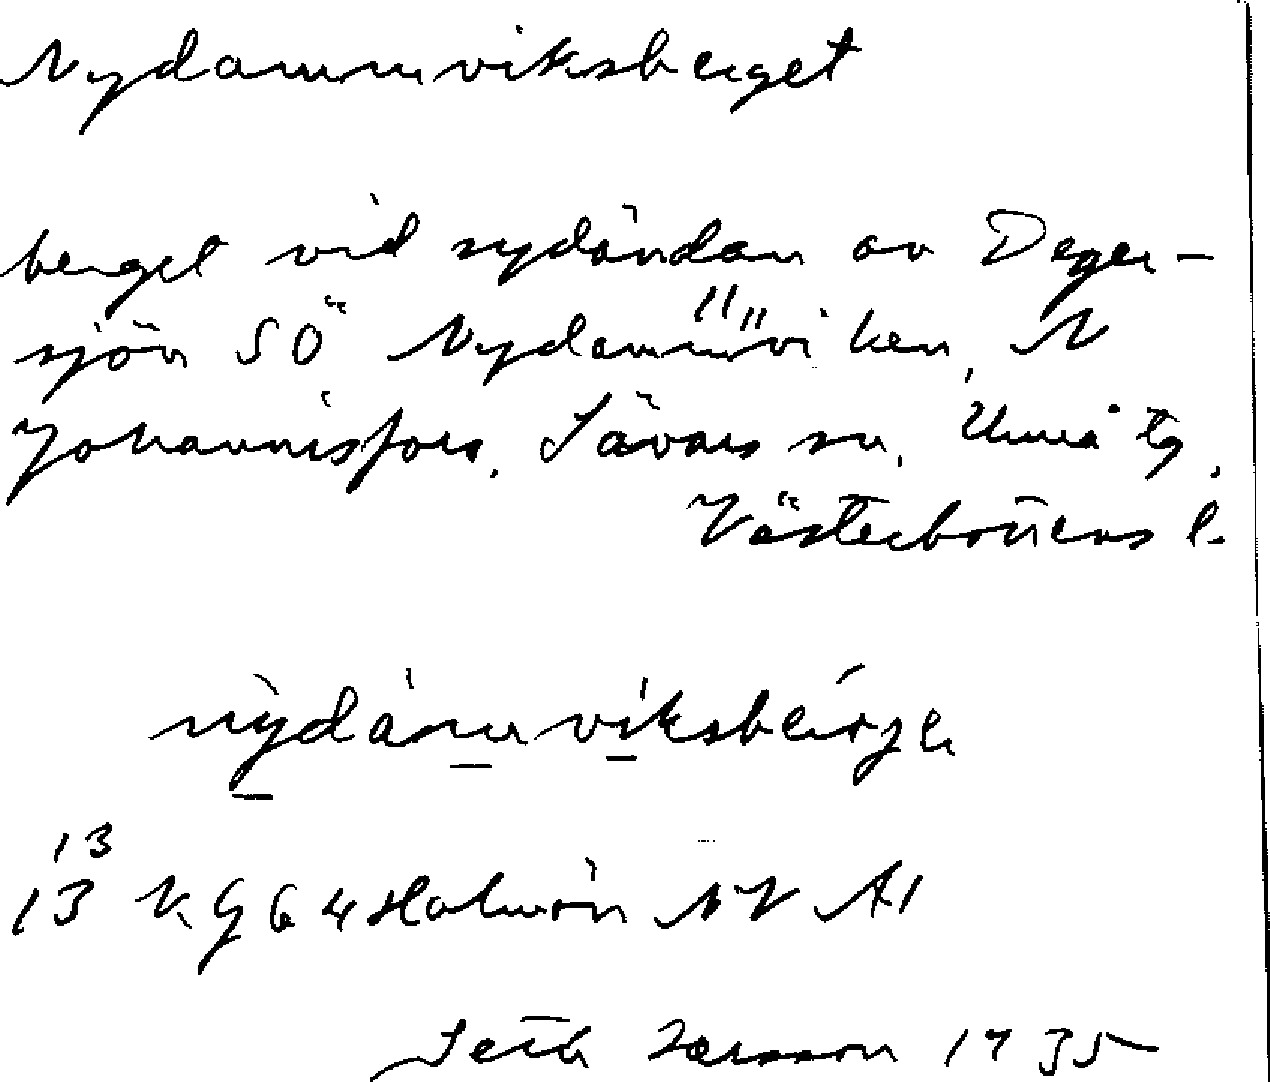 Nydammviksberget
berget vid sydändan av Deger-
sjön SÖ Nydammviken, N
Johannisfors. Sävars sn, Umeå tg,
Västerbottens l.
nydámmviksbérje
13
13 K G 64 Holmön NV A1
Seth Larsson 1935